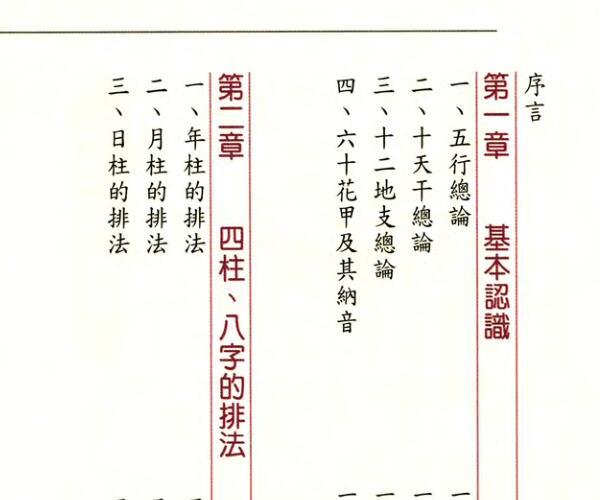 序言
第一章 基本認識
一、五行總論
二、十天干總論
三、十二地支總論
四、六十花甲及其納音
第二章 四柱、八字的排法
一、年柱的排法
二、月柱的排法
三、日柱的排法